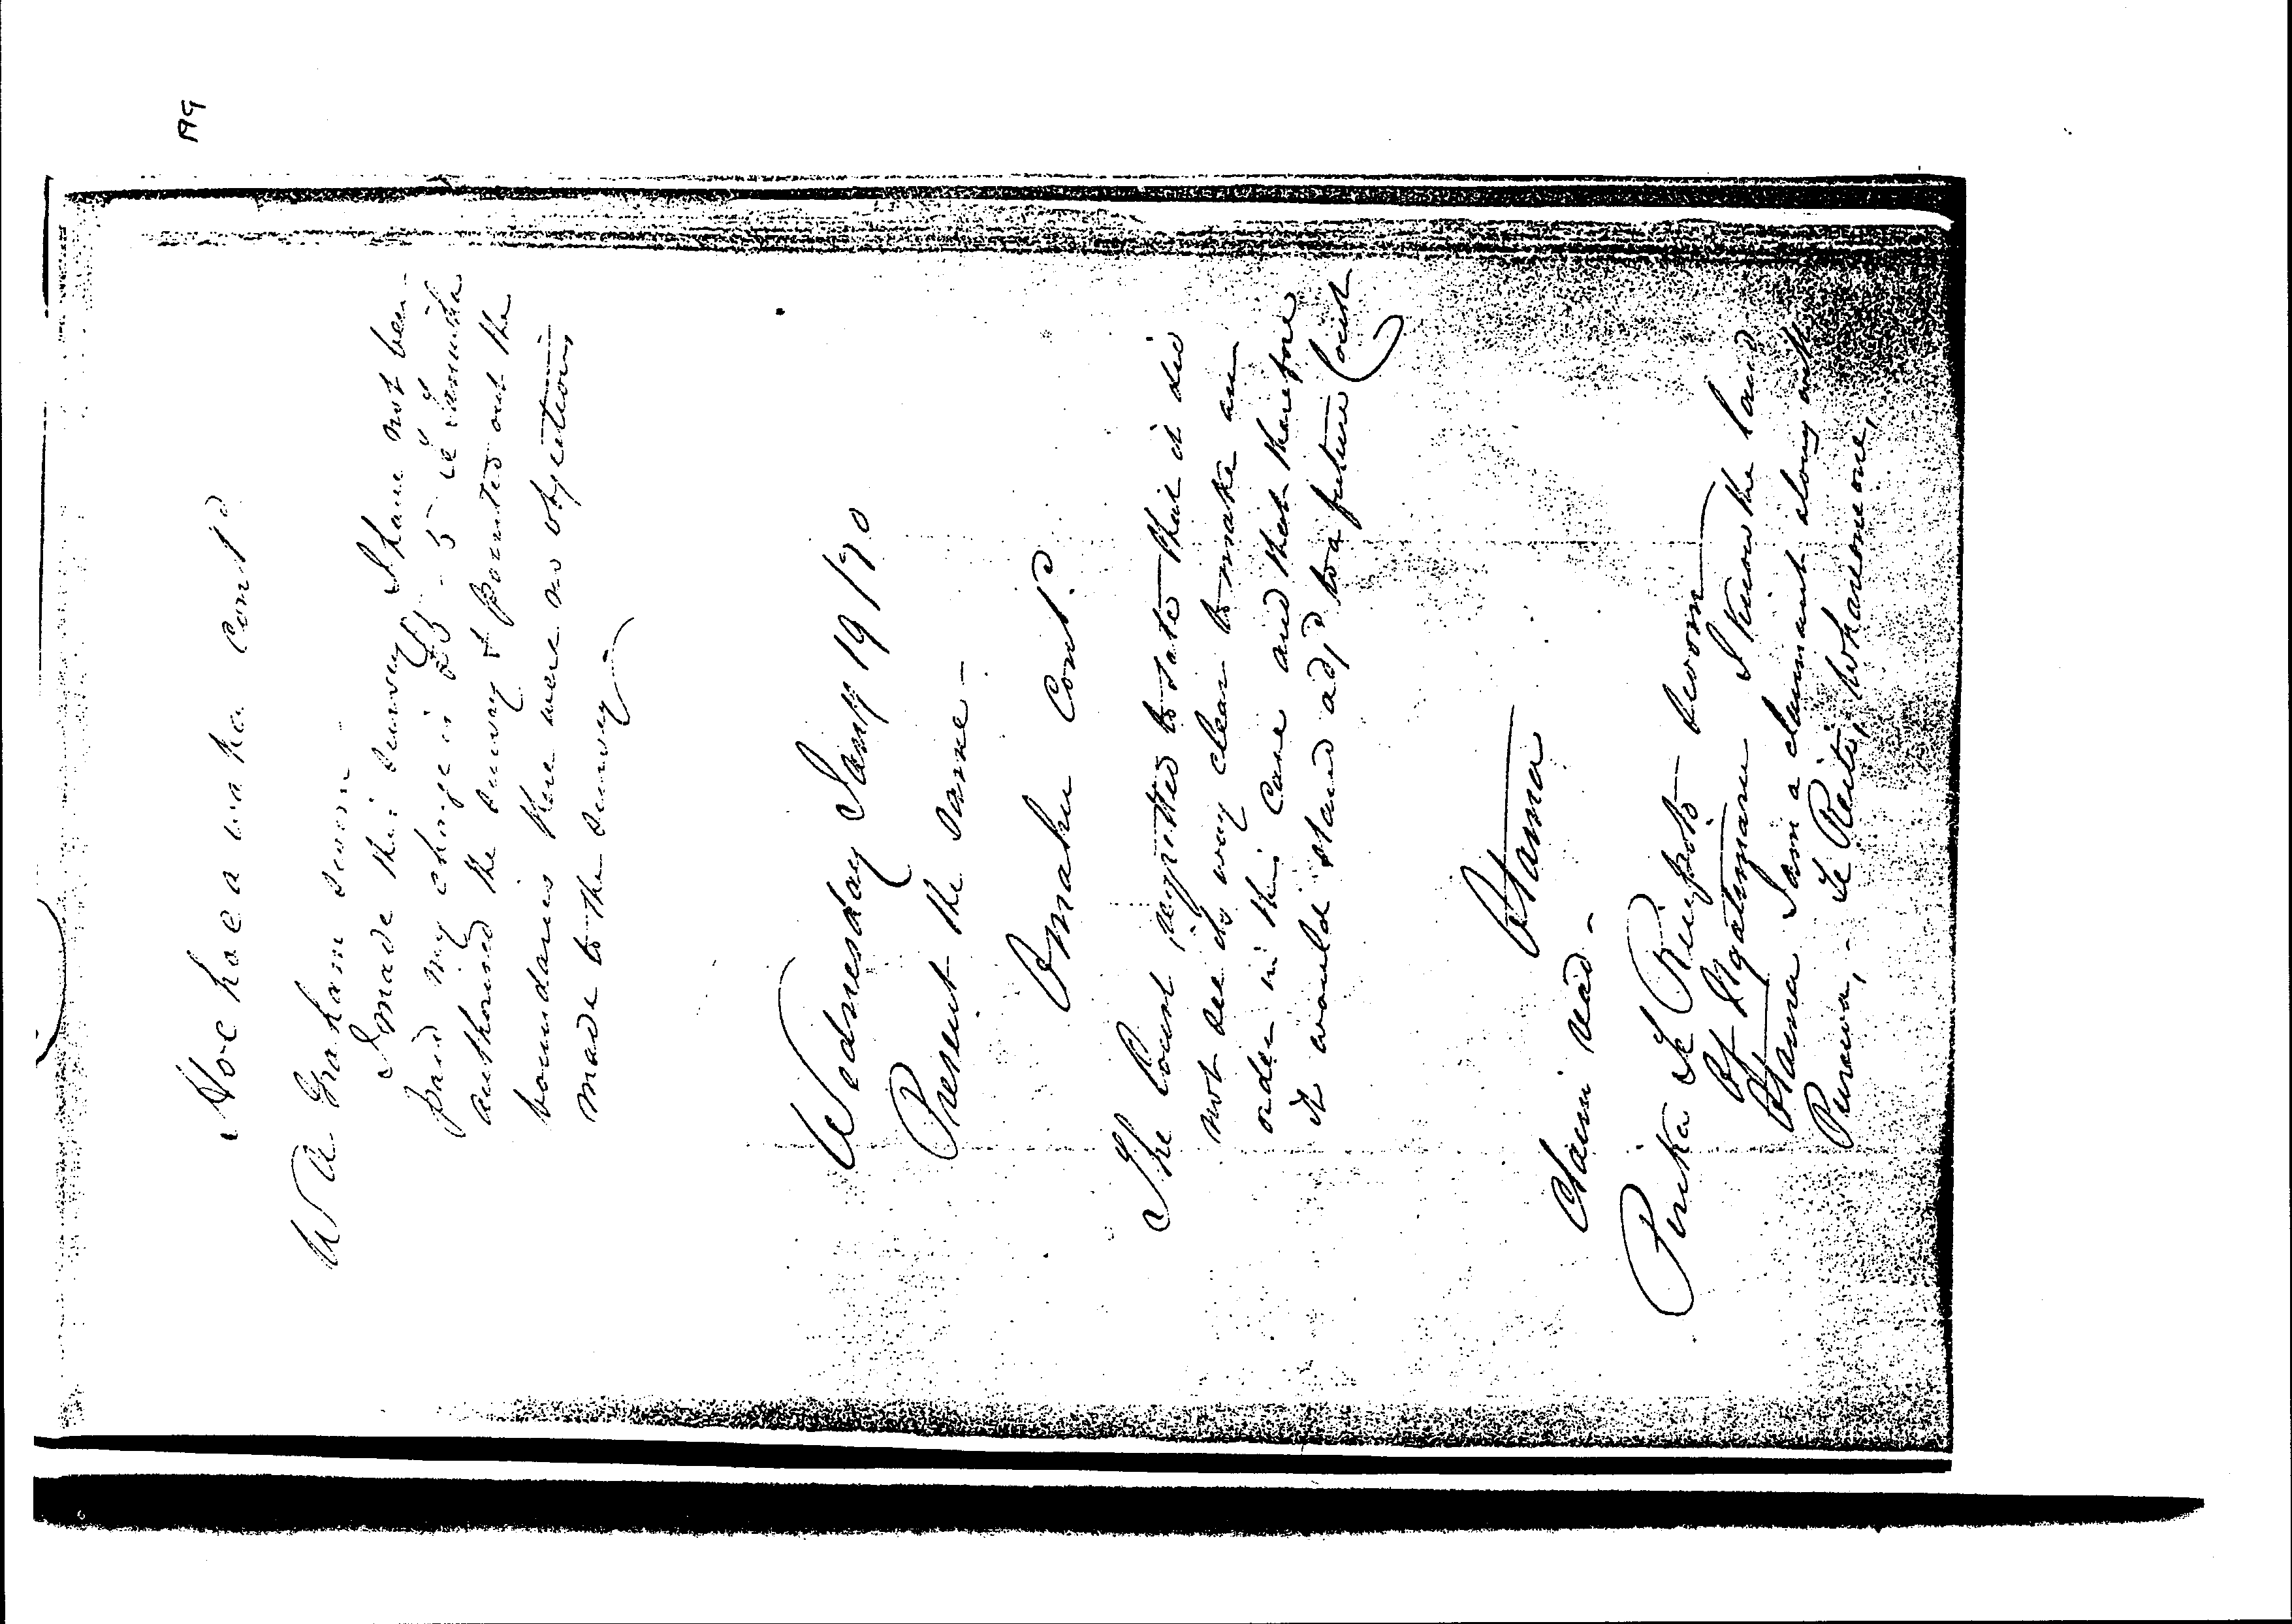 199
Hoehoea waka Cont.d
W A Graham sworn
I made this survey I have not been
paid my charge is £3 - 5 -
authorized the survey & pointed out the
boundaries there were no objections
made to the survey
Wednesday Jany 19/70
Present the same -
Omahu Cont.d
The Court regretted to state that it did
not see its way clear to make an
order in this Case and that therefore
it would stand adj.d to a future Court
Otama
Claim read -
Pirika Te sworn
of Ngatimaru I know the land
Otama I am a claimant along with
Te